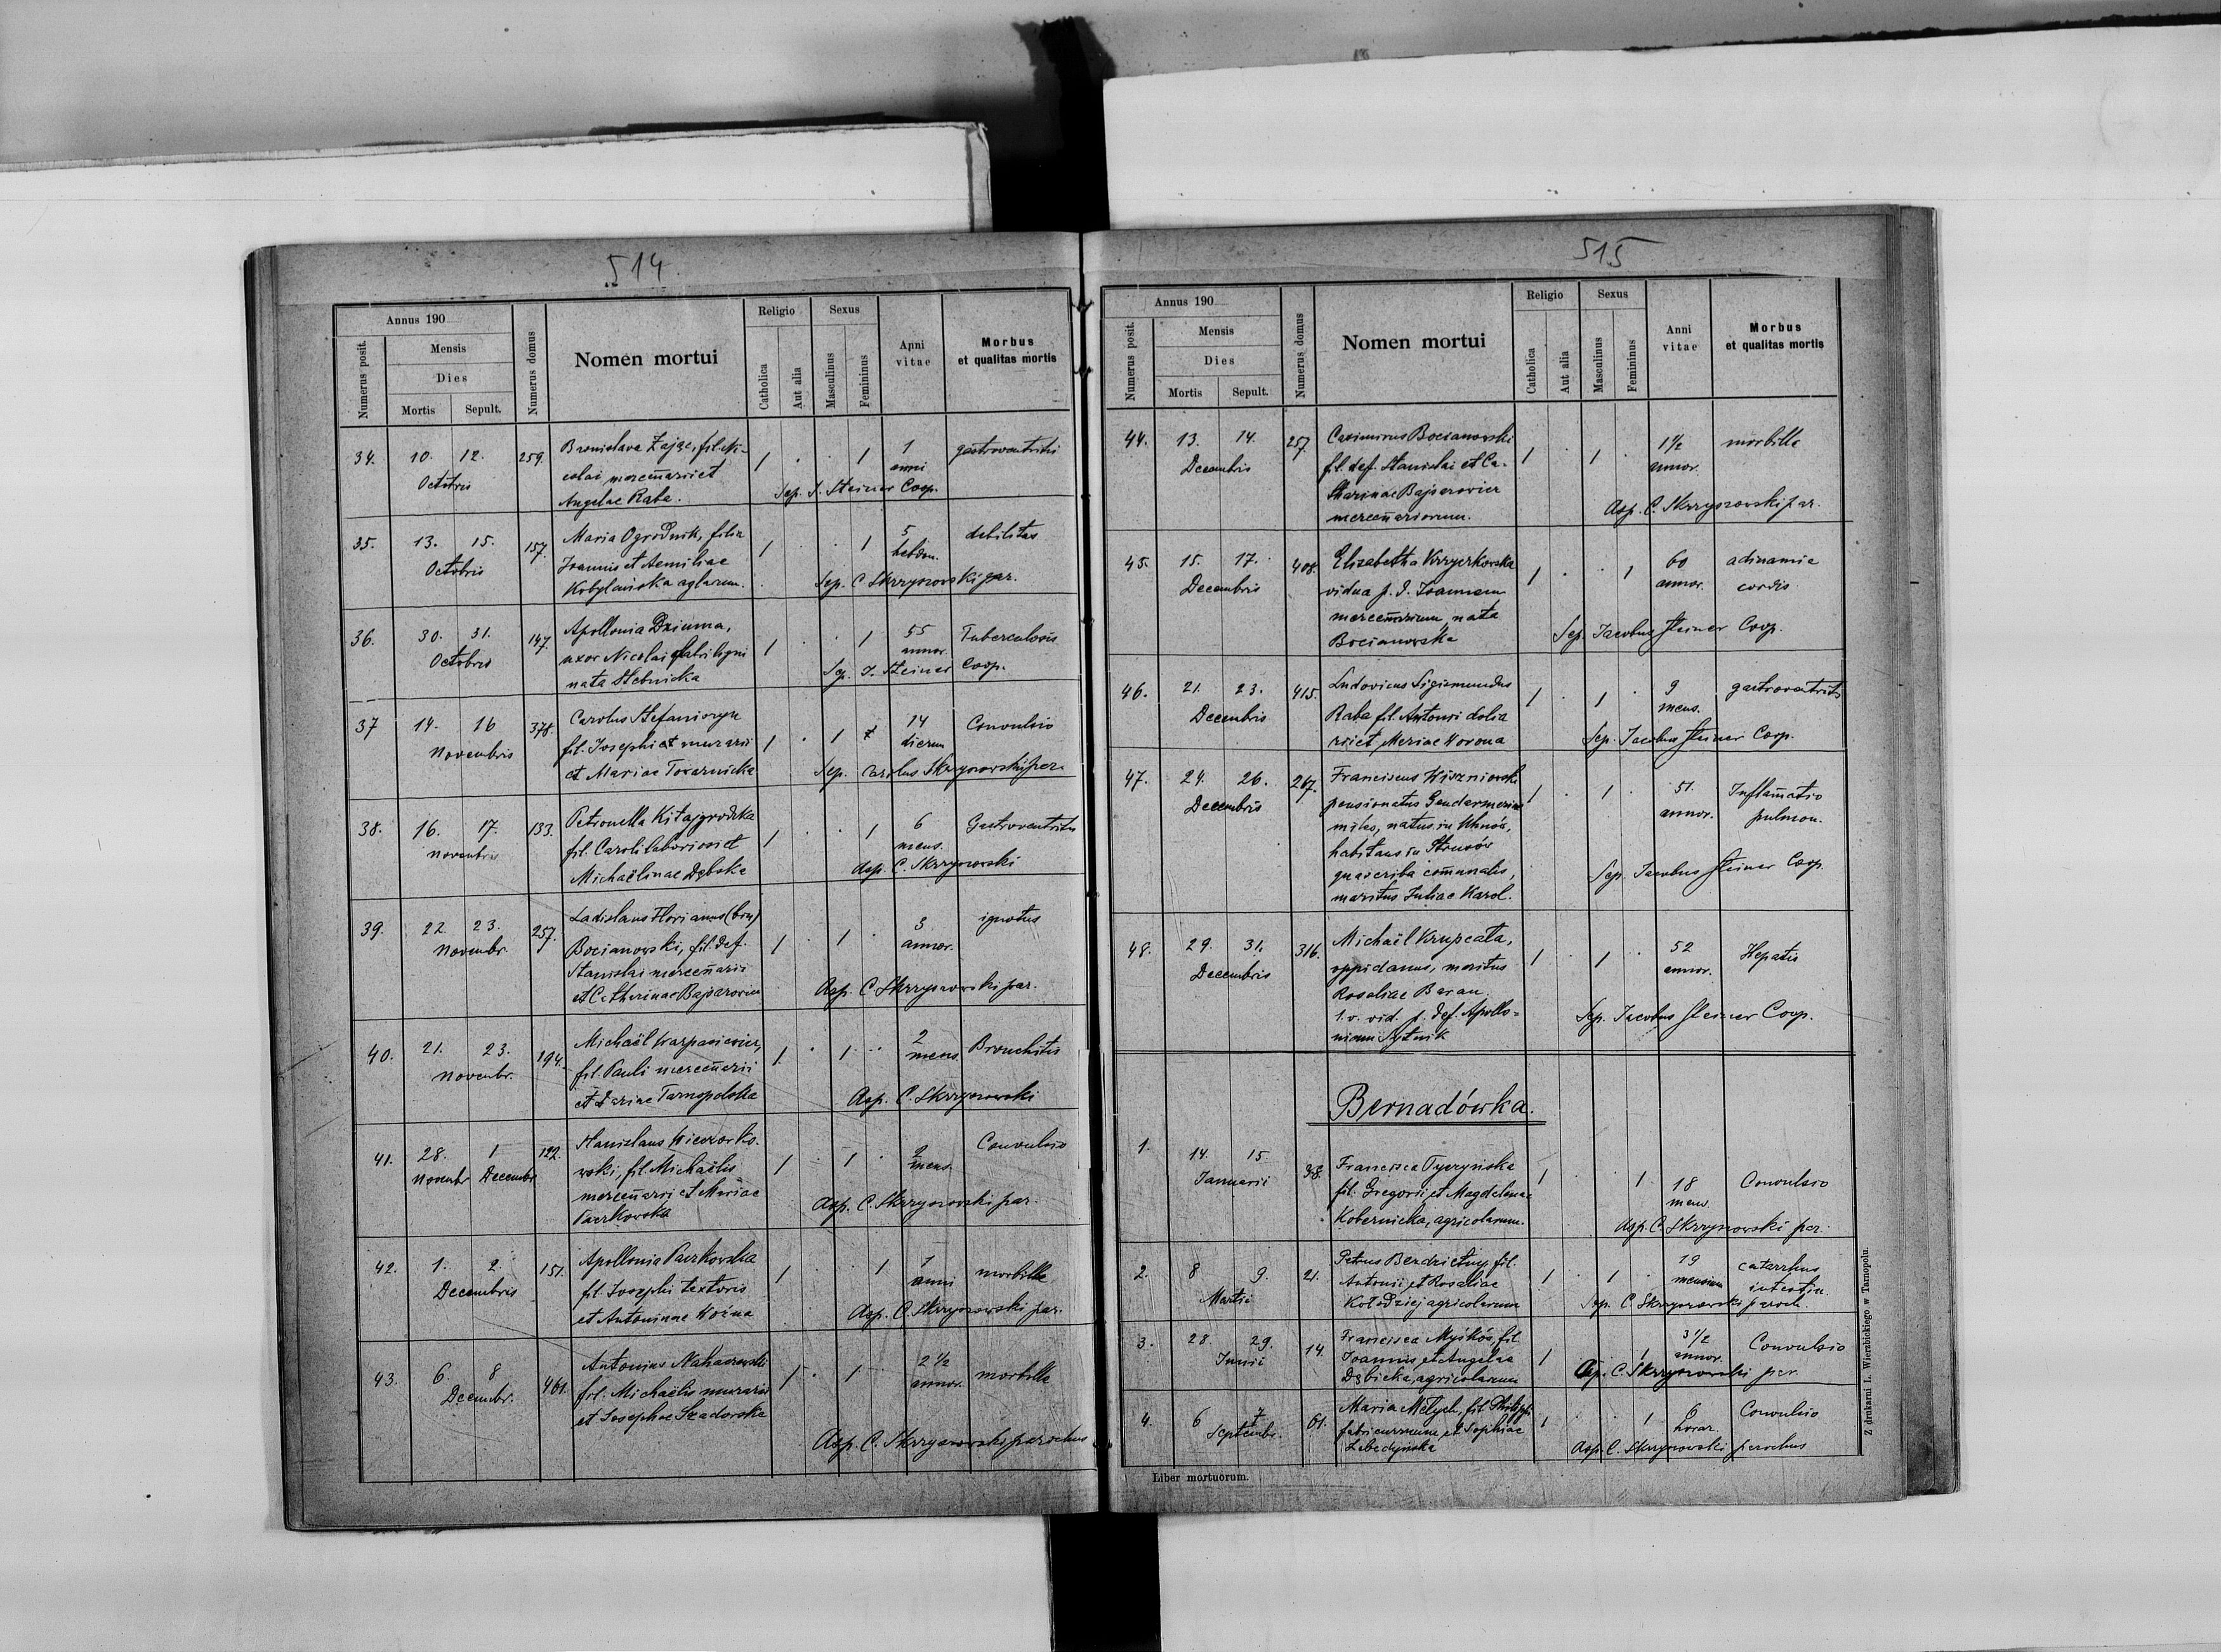 514.
Annus 190
Numerus posit.
Mensis
Dies
Mortis
Sepult.
Numerus domus
Nomen mortui
Religio
Catholica
Aut alia
Sexus
Masculinus
Femininus
Anni vitae
Morbus et qualitas mortis
34. 10. 12. 259. Bronislava Zając, fil. Ni- 1 . . 1 1
Octobris colai merceñarii et anni
Angelae Raba. Sep. J. Steiner Coop.
35. 13. 15. 157. Maria Ogrodnik, filia 1 . 1 5 debilitas
Octobris Joannis et Aemiliae hebdom.
Kobylańska Sep. C Skrzyszowski par.
36. 30. 31. 147. Apollonia Dziuma, 1 . . 1 55 Tuberculosis
Octobris uxor Nicolai fabri ligni annor.
nata Stebnicka Sep. J. Steiner Coop.
37 14. 16 378. Carolus 1 . 1 14 Convulsio
Novembris fil. Josephi et murarii dierum
et Mariae Sep. Carolus Skrzyszowski par.
38. 16. 17. 133. Petronella Kitajgrodzka 1 . . 1 6
Novembris fil. Caroli et mens.
Michaëlinae Dębska Asp. C. Skrzyszowski
39. 22. 23. 257. Ladislaus Florianus (bin) 1 . 1 3 ignotus
Novembr Bocianowski, fil. def. annor.
Stanislai merceñarii
et Catharinae Asp. C. Skrzyszowski par.
40. 21. 23. 194. Michaël Karpasiewicz, 1 . 1 . . 2 Bronchitis
Novembr. fil. Pauli merceñarii mens
et Tarnopolska Asp. C. Skrzyszowski
41. 28. 1 122. Stanislaus Wieczorko- 1 . 1 . 2 Convulsio
Novembr Decembr wski, fil. Michaëlis mens.
merceñarii et Mariae Asp. C. Skrzyszowski par.
Paczkowska
42. 1. 2. 151. Apollonia Paczkowska 1 . 1 1 morbille
Decembris fil. Josephi textoris anni
et Antoninae Woźna Asp. C. Skrzyszowski par.
43. 6. 8 461. Antonius 1 . 1 . 2 1/2 morbille
Decembr. fil. Michaëlis murarii annor.
et Josephae Szadorska
Asp. C. Skrzyszowski parochus
515
Annus 190
Numerus posit.
Mensis
Dies
Mortis
Sepult.
Numerus domus
Nomen mortui
Religio
Catholica
Aut alia
Sexus
Masculinus
Femininus
Anni vitae
Morbus et qualitas mortis
44. 13. 14. 257. Casimirus Bocianowski 1 . 1 . 1 1/2 morbille
Decembris fil. def. Stanislai et Ca- annor.
tharinae
merceñariorum. Asp. C. Skrzyszowski par.
45. 15. 17. 408. Elisabetha Krzyczkowska 1 . . 1 60 adinamia
Decembris vidua p. d. Joannem annor. cordis
merceñarium, nata
Bocianowska Sep. Jacobus Steiner Coop.
46. 21. 23. 415. Ludovicus Sigismundus 1 . 1 . 9
Decembris Raba fil. Antonii dolia mens.
rii et Mariae Worona Sep. Jacobus Steiner Coop.
47. 24. 26. 267. Franciscus Wiszniowski 1 . 1 . 51. Inflam̃atio
Decembris pensionatus Gendarmeriae annor. pulmon.
miles, natus in Uhnów,
habitans in Strusów
qua scriba com̃unalis, Sep. Jacobus Steiner Coop.
maritus Juliae Karol.
48. 29. 31. 316. Michaël Krupeata, 1 . 1 . . 52 Hepatis
Decembris oppidanus, maritus annor.
Rosaliae Baran.
1. v. vid. p. def. Apollo= Sep. Jacobus Steiner Coop.
niam Sytnik
Bernadówka.
1. 14. 15. 38. Francisca Tyczyńska 1 1 18 Convulsio
Januarii fil. Gregorii et Magdalenae mens
Kobernicka, agricolarum. Asp. C. Skrzyszowski par.
2. 8 9. 21. Petrus fil. 1 . 1 . 19 catarrhus
Martii Antonii et Rosaliae mensium intestin.
Kołodziej agricolarum Sep. C Skrzyszowski paroch.
3. 28 29. 14. Francisca fil 1 1 3 1/2 Convulsio
Junii Joannis et Angelae annor.
Dębicka, agricolarum Asp. C. Skrzyszowski par
4. 6 7 61. Maria fil. Philippi 1 . 1 6 Convulsio
Septembr. et Sophiae horar.
Lebedyńska Asp. C. Skrzyszowski parochus
Liber mortuorum.
Z drukarni L. Wierzbickiego w Tarnopolu.